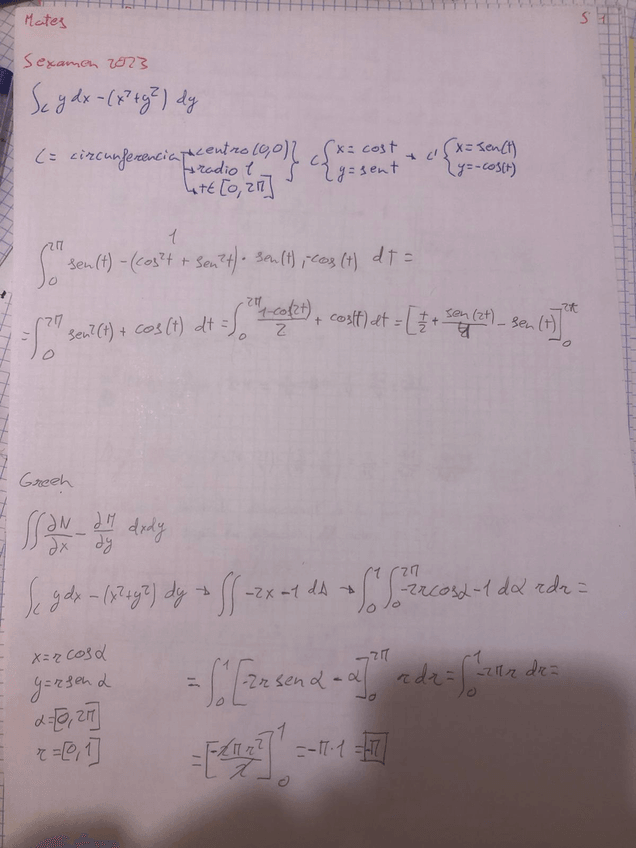 Mates
S 1
Sexamen 2023
∫c y dx - (x²+y²) dy
C = circunferencia → centro (0,0) → radio 1 → t ∈ [0, 2π] } C { x = cos t y = sen t → C' { x = sen(t) y = -cos(t)
1
∫₀^2π sen(t) - (cos²t + sen²t) · sen(t), -cos(t) dt =
= ∫₀^2π sen²(t) + cos(t) dt = ∫₀^2π (1-cos(2t))/2 + cos(t) dt = [t/2 + sen(2t)/4 - sen(t)]₀^2π
Green
∬ ∂N/∂x - ∂M/∂y dxdy
∫c y dx - (x²+y²) dy → ∬ -2x - 1 dA → ∫₀^1 ∫₀^2π -2r cosα - 1 dα r dr =
x = r cosα
y = r sen α
α = [0, 2π]
r = [0, 1]
= ∫₀^1 [-2r sen α - α]₀^2π r dr = ∫₀^1 -2π r dr =
= [-2π r²/2]₀^1 = -π · 1 = -π